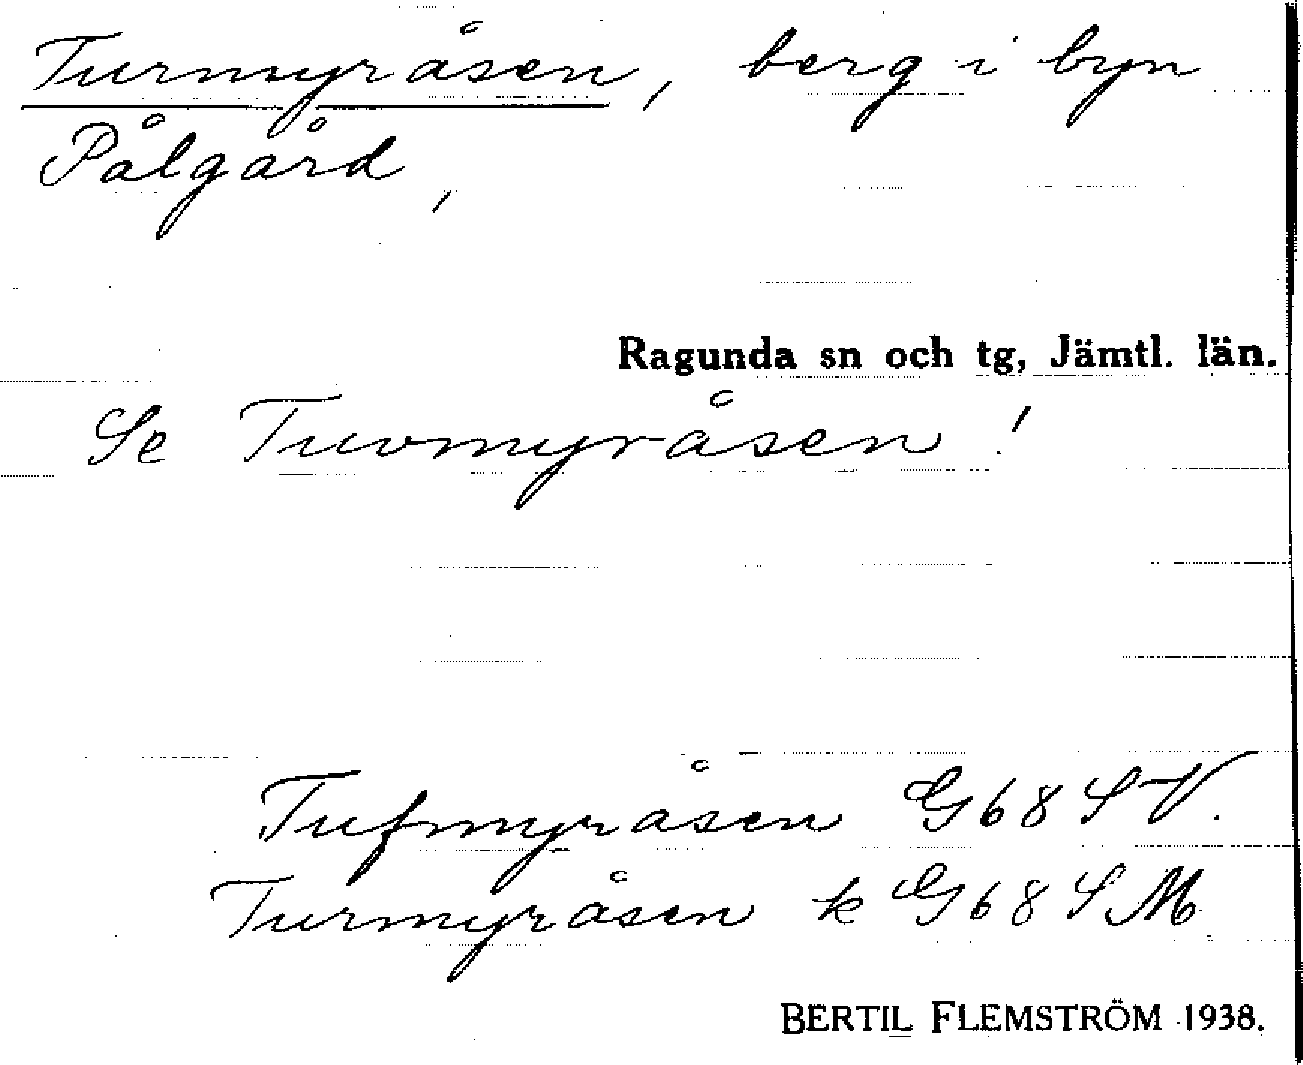 Turmyråsen, berg i byn
Pålgård,
Ragunda sn och tg, Jämtl. län.
Se Tuvmyråsen!
Tufmyråsen G68SV.
Turmyråsen k G68SM
BERTIL FLEMSTRÖM 1938.